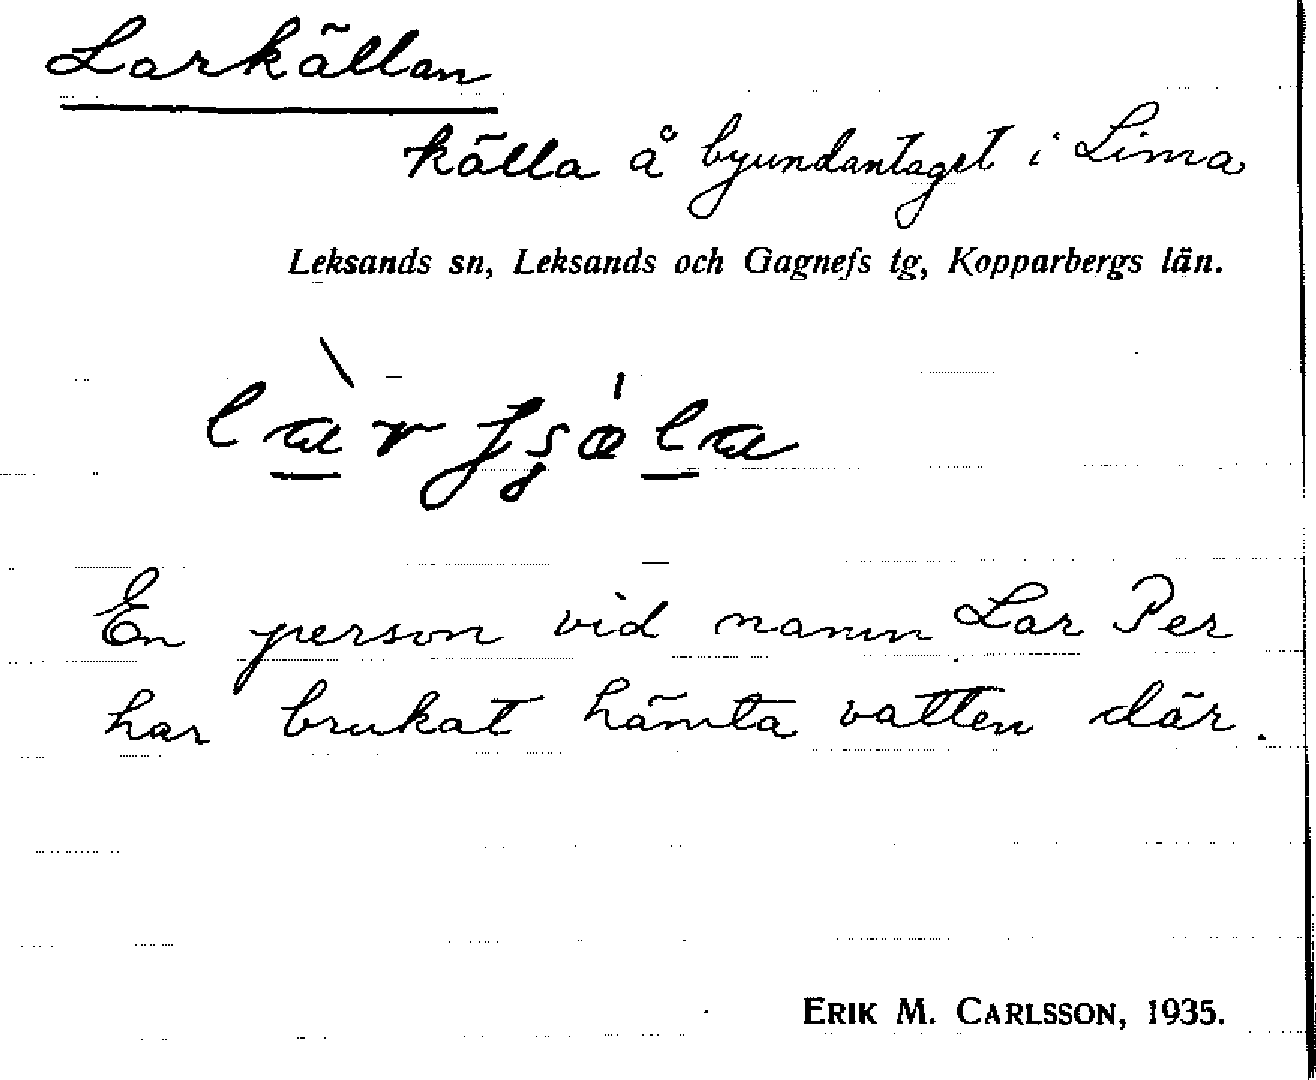 Larkällan
källa å byundantaget i Lima
Leksands sn, Leksands och Gagnefs tg, Kopparbergs län.
En person vid namn Lar Per
har brukat hämta vatten där.
ERIK M. CARLSSON, 1935.